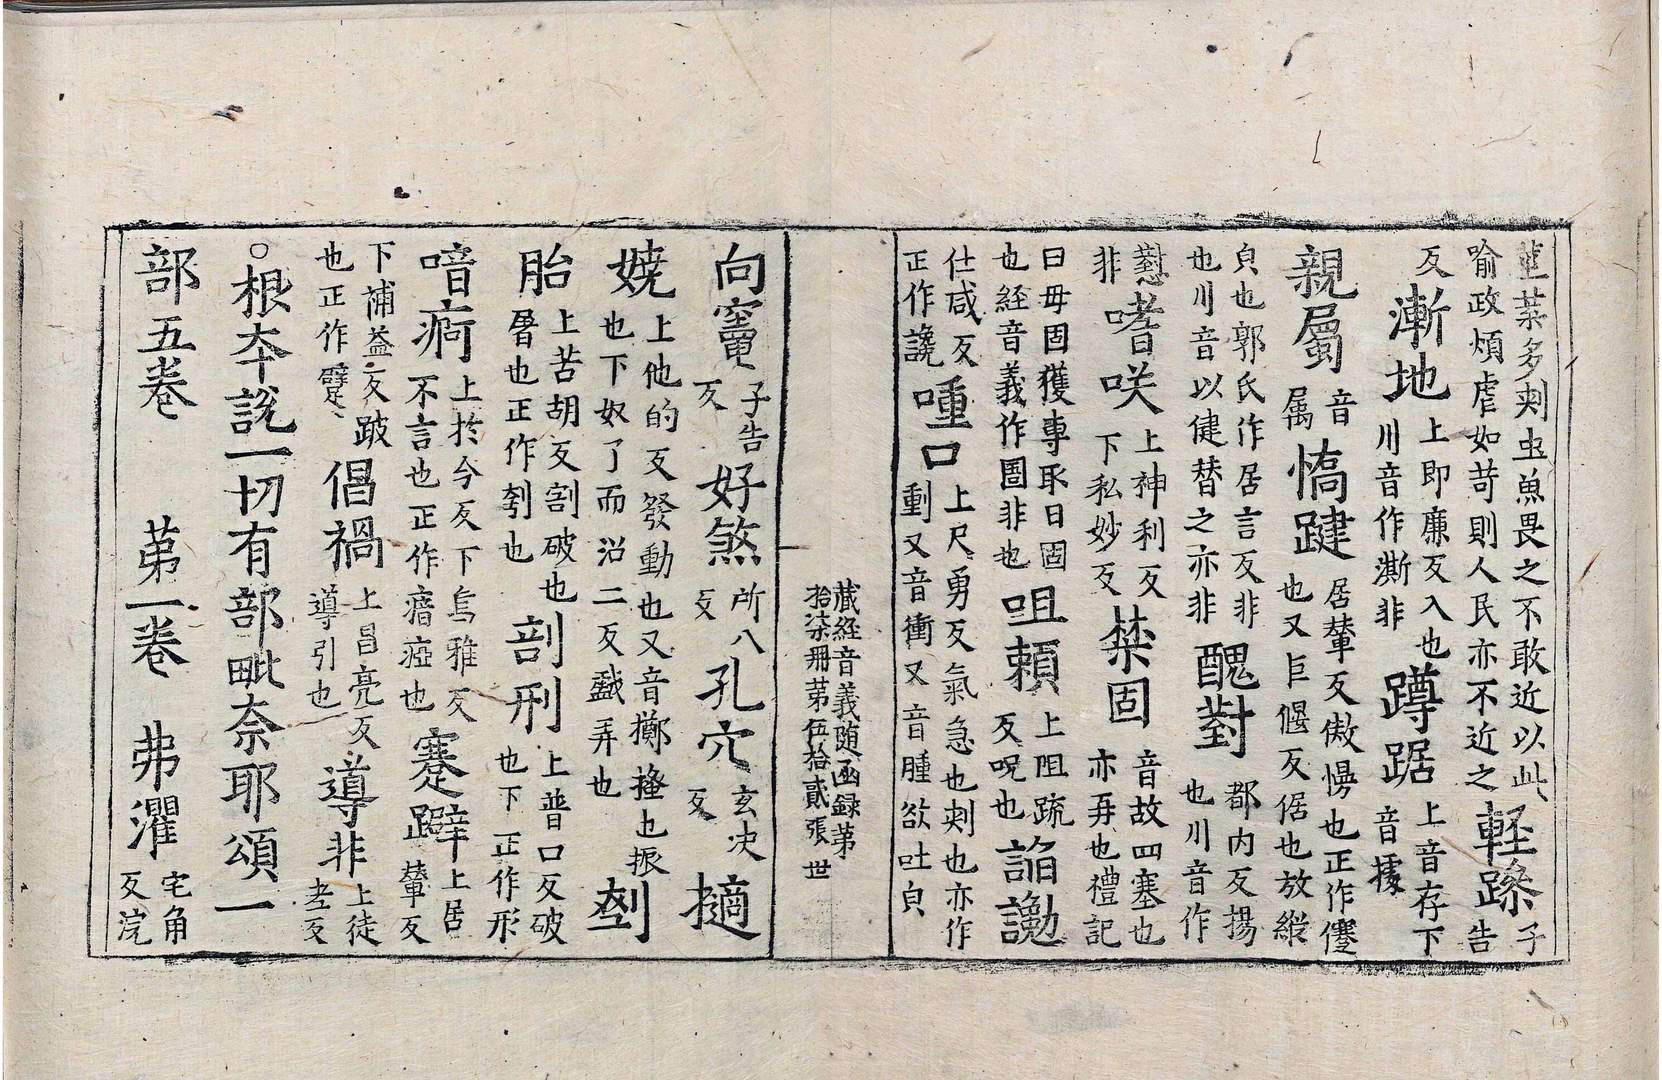 韮菜多刾虫魚畏之不敢近以此
喻政煩虐如苛則人民亦不近之 輕躁 子告
反 漸地 上即廉反入也川音作澌非 蹲踞 上音存下音據
親屬 音属 憍踺 居輦反傲慢也正作㒄也又巨偃反倨也放縱
皃也郭氏作居言反非也川音以健替之亦非 醜對 都内反揚也川音作
懟非 嗜咲 上神利反下私妙反 禁固 音故四塞也亦再也禮記
曰毋固獲專取曰固也経音義作圄非也 咀頼 上阻䟽反呪也 謟讟
仕咸反正作讒 喠口 上尺勇反氣急也刾也亦作㓼又音衝又音腫欲吐皃
藏経音義随函録第
拾柒冊第伍拾貳張 世
向竈 子告反 好煞 所八反 孔穴 玄决反 擿
嬈 上他的反發動也又音擲搔也振也下奴了而沼二反戲弄也 刳
胎 上苦胡反割破也屠也正作刳也 剖刑 上普口反破也下正作形
喑痾 上於今反下烏雅反不言也正作瘖瘂也 蹇躃 上居輦反
下蒲益反跛也正作躄 倡禍 上昌亮反導引也 導非 上徒孝反
○根夲說一切有部毗奈耶頌一
部五卷 苐一卷 弗濯 宅角反浣